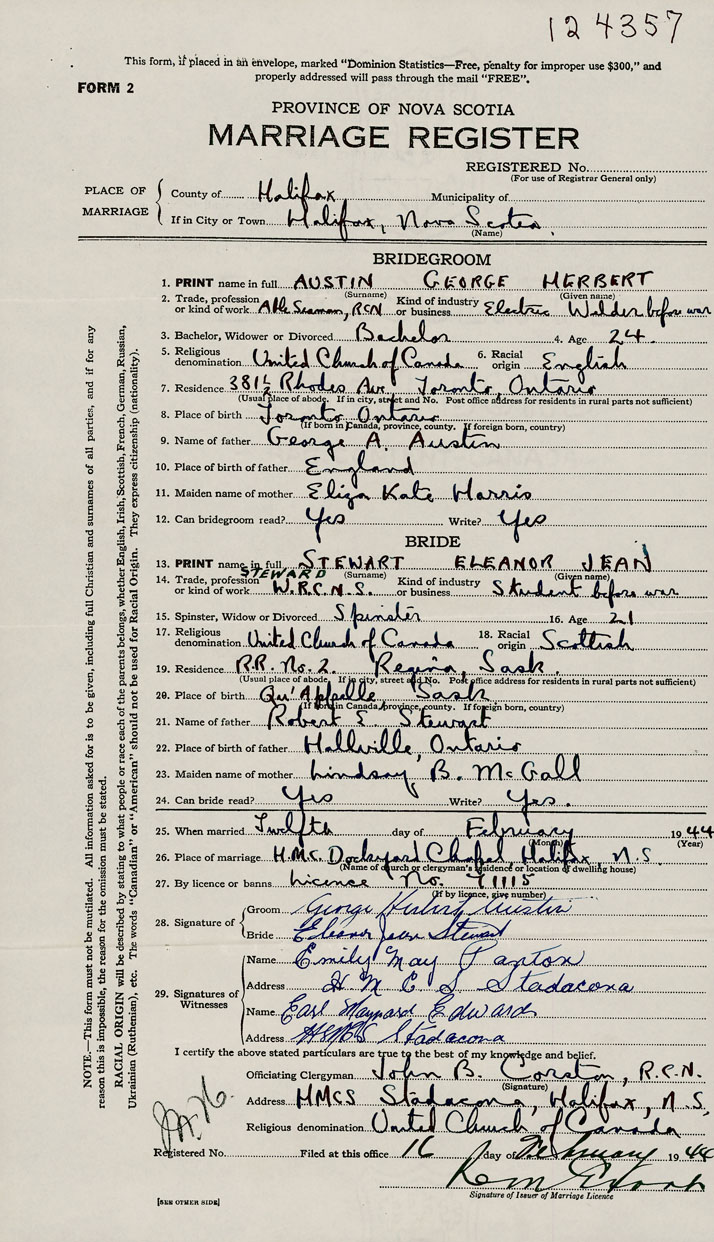 124357
This form, if placed in an envelope, marked "Dominion Statistics—Free, penalty for improper use $300," and
properly addressed will pass through the mail "FREE".
FORM 2
PROVINCE OF NOVA SCOTIA
MARRIAGE REGISTER
REGISTERED No.
(For use of Registrar General only)
PLACE OF MARRIAGE
County of Halifax Municipality of
If in City or Town Halifax, Nova Scotia.
(Name)
BRIDEGROOM
1. PRINT name in full AUSTIN GEORGE HERBERT
(Surname) (Given name)
2. Trade, profession or kind of work Able Seaman, RCN Kind of industry or business Electric Welder before war
3. Bachelor, Widower or Divorced Bachelor 4. Age 24.
5. Religious denomination United Church of Canada 6. Racial origin English
7. Residence 381½ Rhodes Av. Toronto, Ontario
(Usual place of abode. If in city, street and No. Post office address for residents in rural parts not sufficient)
8. Place of birth Toronto Ontario
(If born in Canada, province, county. If foreign born, country)
9. Name of father George A. Austin
10. Place of birth of father England
11. Maiden name of mother Eliza Kate Harris
12. Can bridegroom read? Yes Write? Yes
BRIDE
13. PRINT name in full STEWART ELEANOR JEAN
(Surname) (Given name)
STEWARD
14. Trade, profession or kind of work W.R.C.N.S. Kind of industry or business Student before war
15. Spinster, Widow or Divorced Spinster 16. Age 21
17. Religious denomination United Church of Canada 18. Racial origin Scottish
19. Residence R.R. No. 2. Regina, Sask.
(Usual place of abode. If in city, street and No. Post office address for residents in rural parts not sufficient)
20. Place of birth Qu'Appelle Sask
(If born in Canada, province, county. If foreign born, country)
21. Name of father Robert E. Stewart
22. Place of birth of father Hallville, Ontario
23. Maiden name of mother Lindsay B. McGall
24. Can bride read? Yes Write? Yes.
25. When married Twelfth day of February 1944
(Month) (Year)
26. Place of marriage H.M.C. Dockyard Chapel, Halifax, N.S.
(Name of church or clergyman's residence or location of dwelling house)
27. By licence or banns License No. 71115
(If by licence, give number)
28. Signature of
Groom George Herbert Austin
Bride Eleanor Jean Stewart
29. Signatures of Witnesses
Name Emily May Panton
Address H M C S Stadacona
Name Earl Maynard Edwards
Address HMCS Stadacona
I certify the above stated particulars are true to the best of my knowledge and belief.
Officiating Clergyman John B. Corston, R.C.N.
(Signature)
Address HMCS Stadacona, Halifax, N.S.
Religious denomination United Church of Canada
Registered No. Filed at this office 16 day of February 1944
Signature of Issuer of Marriage Licence
[SEE OTHER SIDE]
NOTE.—This form must not be mutilated. All information asked for is to be given, including full Christian and surnames of all parties, and if for any
reason this is impossible, the reason for the omission must be stated.
RACIAL ORIGIN will be described by stating to what people or race each of the parents belongs, whether English, Irish, Scottish, French, German, Russian,
Ukrainian (Ruthenian), etc. The words "Canadian" or "American" should not be used for Racial Origin. They express citizenship (nationality).